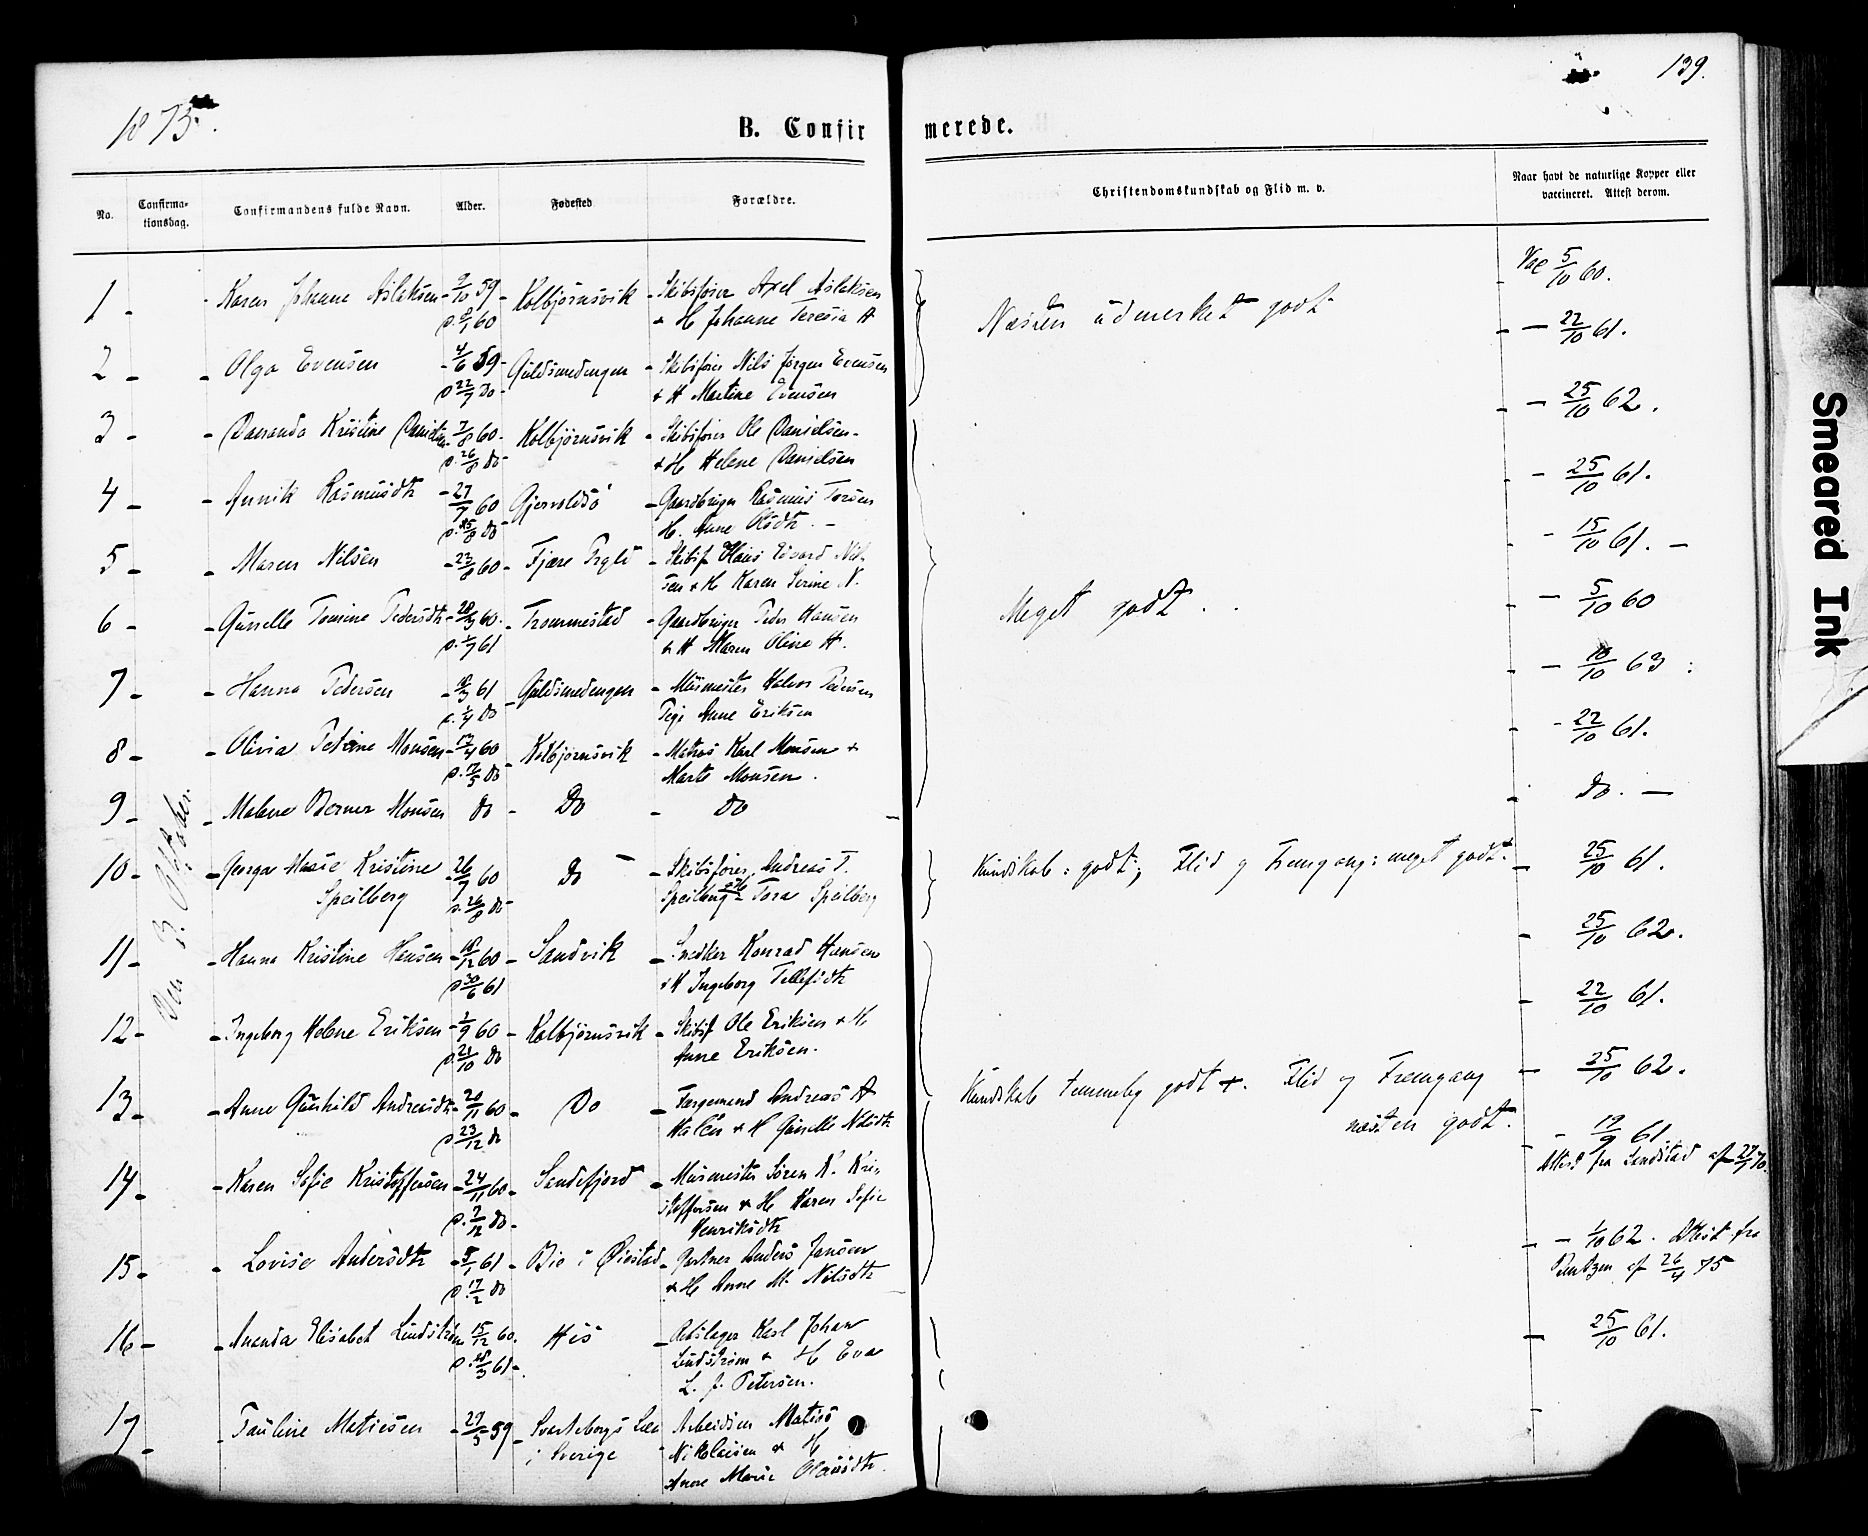 139.
1875.
B. Confirmerede.
No.
Confirmationsdag.
Confirmandens fulde Navn.
Alder.
Fødested
Forældre.
Christendomskundskab og Flid m. v.
Naar havt de naturlige Kopper eller vaccineret. Attest derom.
Den 3. Oktober.
1 - Karen Johanne Aslaksen - 9/10 59 - Kolbjörnsvik - Skibsfører Axel Aslaksen
60 + H Johanne Teresia A
Næsten udmerket godt
Vac 5/10 60.
2 - Olga Evensen - 4/6 59 - Guldsmedengen - Skibsfører Nils Jørgen Evensen
22/7 do + H Martine Evensen
- 22/10 61.
3 - Kristine 7/8 60 - Kolbjørnsvik - Skibsfører Ole Danielsen
26/8 do + H Helene Danielsen
- 25/10 62.
4 - Annik Rasmusdtr - 27/7 60 Gjervoldsö - Gaardbruger Rasmus
do H. Anne Olsdtr. -
- 25/10 61.
5 - Maren Nilsen - 23/8 60 - Fjære - Skibsf Hans Edvard Nil-
sen + H Karen Serine N.
- 15/10 61. -
6 - Gunelle Tomine Pedersdtr 60 - Trommestad - Gaardbruger Peder Hansen
61 + H Maren Oline H.
Meget godt.
- 5/10 60
7 - Hanna Pedersen 61 - Guldsmedengen - Murmester Halvor Pedersen
do Pige Anne Eriksen
- 10/10 63
8 - Olivia Petrine Monsen - 17/4 60 - Kolbjørnsvik - Matros Karl Monsen +
do Marte Monsen.
- 22/10 61.
9 - Malene Berner Monsen do - Do - Do
do. -
10 - Georga Marie Kristine - 26/7 60 do - Skibsfører Andreas T.
Speilberg 26/8 do Speilberg + H Tora Speilberg
Kundskab: godt; Flid og Fremgang: meget godt.
- 25/10 61.
11 - Hanna Kristine Hansen - 18/12 60 - Sandvik - Snedker Konrad Hansen
30/6 61 + H Ingeborg Tellefsdtr
- 25/10 62.
12 - Ingeborg Helene Eriksen - 1/9 60 - Kolbjørnsvik - Skibsf Ole Eriksen + H
21/10 do Anne Eriksen.
- 22/10 61.
13 - Anne Gunhild Andreasdtr - 20/11 60 - Do - Færgemand Andreas A
23/12 do + H Gunelle Nilsdtr
Kundskab temmelig godt +. Flid og Fremgang
næsten godt.
- 25/10 62.
14 - Karen Sofie Kristoffersen - 24/11 60 - Sandefjord - Murmester Søren K. Kri-
do - stoffersen + H Karen Sofie
Henriksdtr
- 19/9 61
Attest fra af
15 - Lovise Andersdtr 61 - Bie i Øiestad - Gartner Anders Jansen
17/2 do + H Anne M. Nilsdtr
- 1/10 62. Attest fra
af 26/4 75
16 - Ananda Elisabet Lindstrøm 15/12 60. His - Rebslager Karl Johan
61 - Lindstrøm + H Eva
L. J. Petersen.
- 25/10 61.
17 - Pauline Matiesen - 59 - Svarteborgs i Sverige Arbeidsm Matias
Nikolaisen + H
Anne Marie Olausdtr.
Smeared Ink